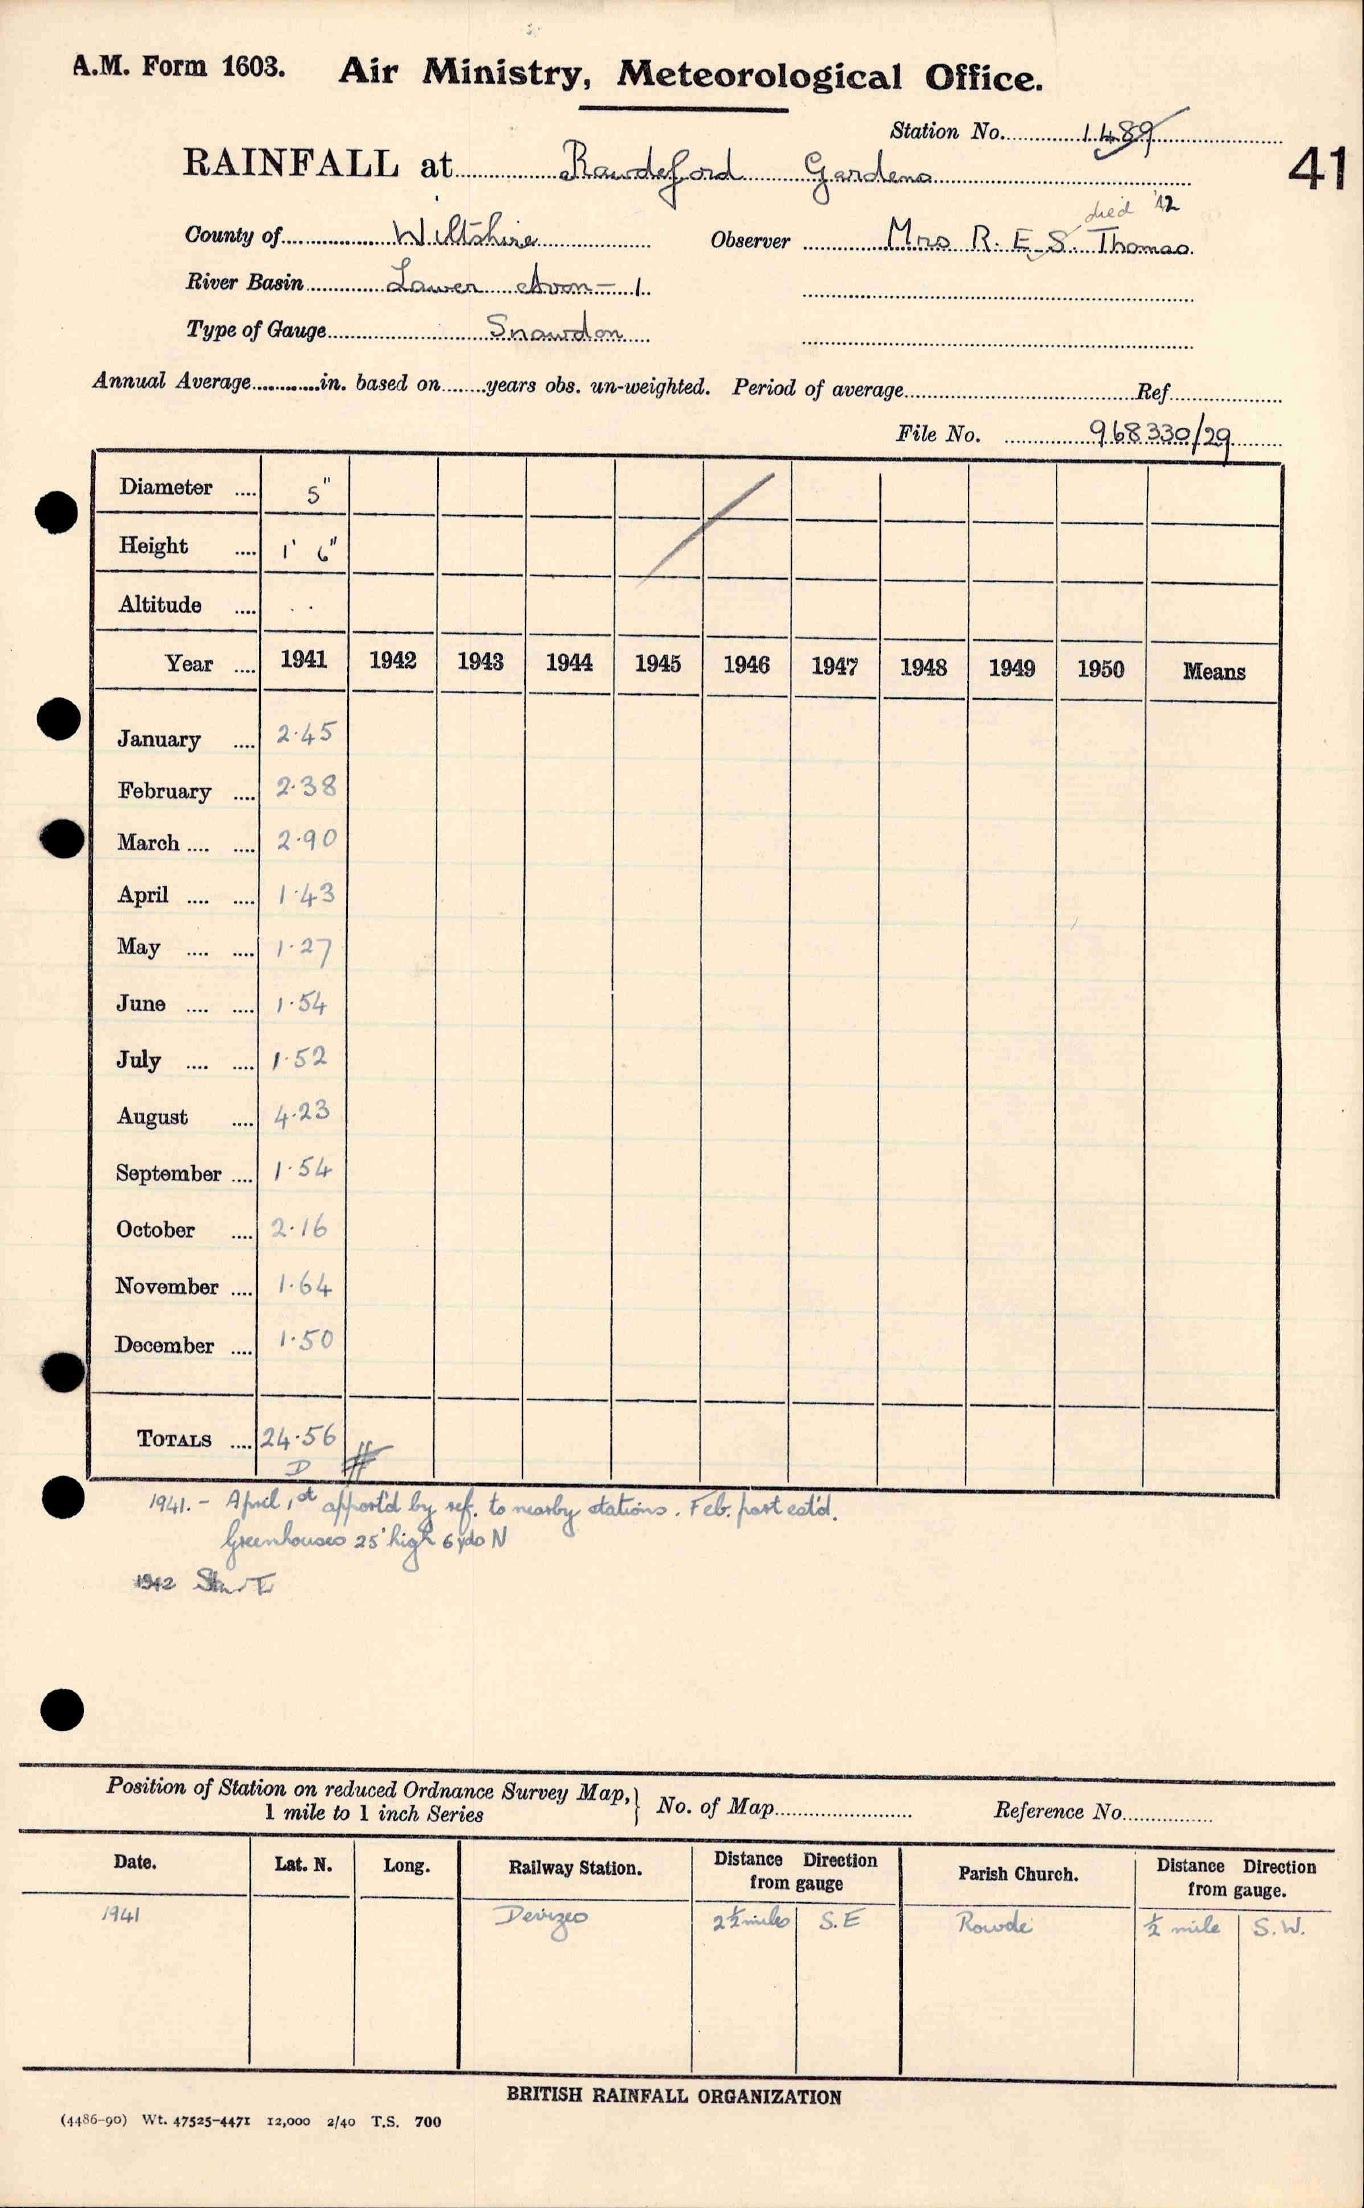 A.M. Form 1603. Air Ministry, Meteorological Office.
Station No. 1489
41
RAINFALL at Rowdeford Gardens
died '42
County of Wiltshire Observer Mrs R. E. S. Thomas
River Basin Lower Avon – 1
Type of Gauge Snowdon
Annual Average in. based on years obs. un-weighted. Period of average Ref
File No. 968330/29
Diameter .... 5"
Height .... 1' 6"
Altitude .... . .
Year .... 1941 1942 1943 1944 1945 1946 1947 1948 1949 1950 Means
January .... 2.45
February .... 2.38
March .... .... 2.90
April .... .... 1.43
May .... .... 1.27
June .... .... 1.54
July .... .... 1.52
August .... 4.23
September .... 1.54
October .... 2.16
November .... 1.64
December .... 1.50
TOTALS .... 24.56
D #
1941. – April 1st apport'd by ref. to nearby stations. Feb. part est'd.
Greenhouses 25' high 6 yds N
1942
Position of Station on reduced Ordnance Survey Map, } No. of Map Reference No.
1 mile to 1 inch Series
Date. Lat. N. Long. Railway Station. Distance Direction from gauge Parish Church. Distance Direction from gauge.
1941 Devizes 2½ miles S.E Rowde ½ mile S.W.
BRITISH RAINFALL ORGANIZATION
(4486-90) Wt. 47525-4471 12,000 2/40 T.S. 700